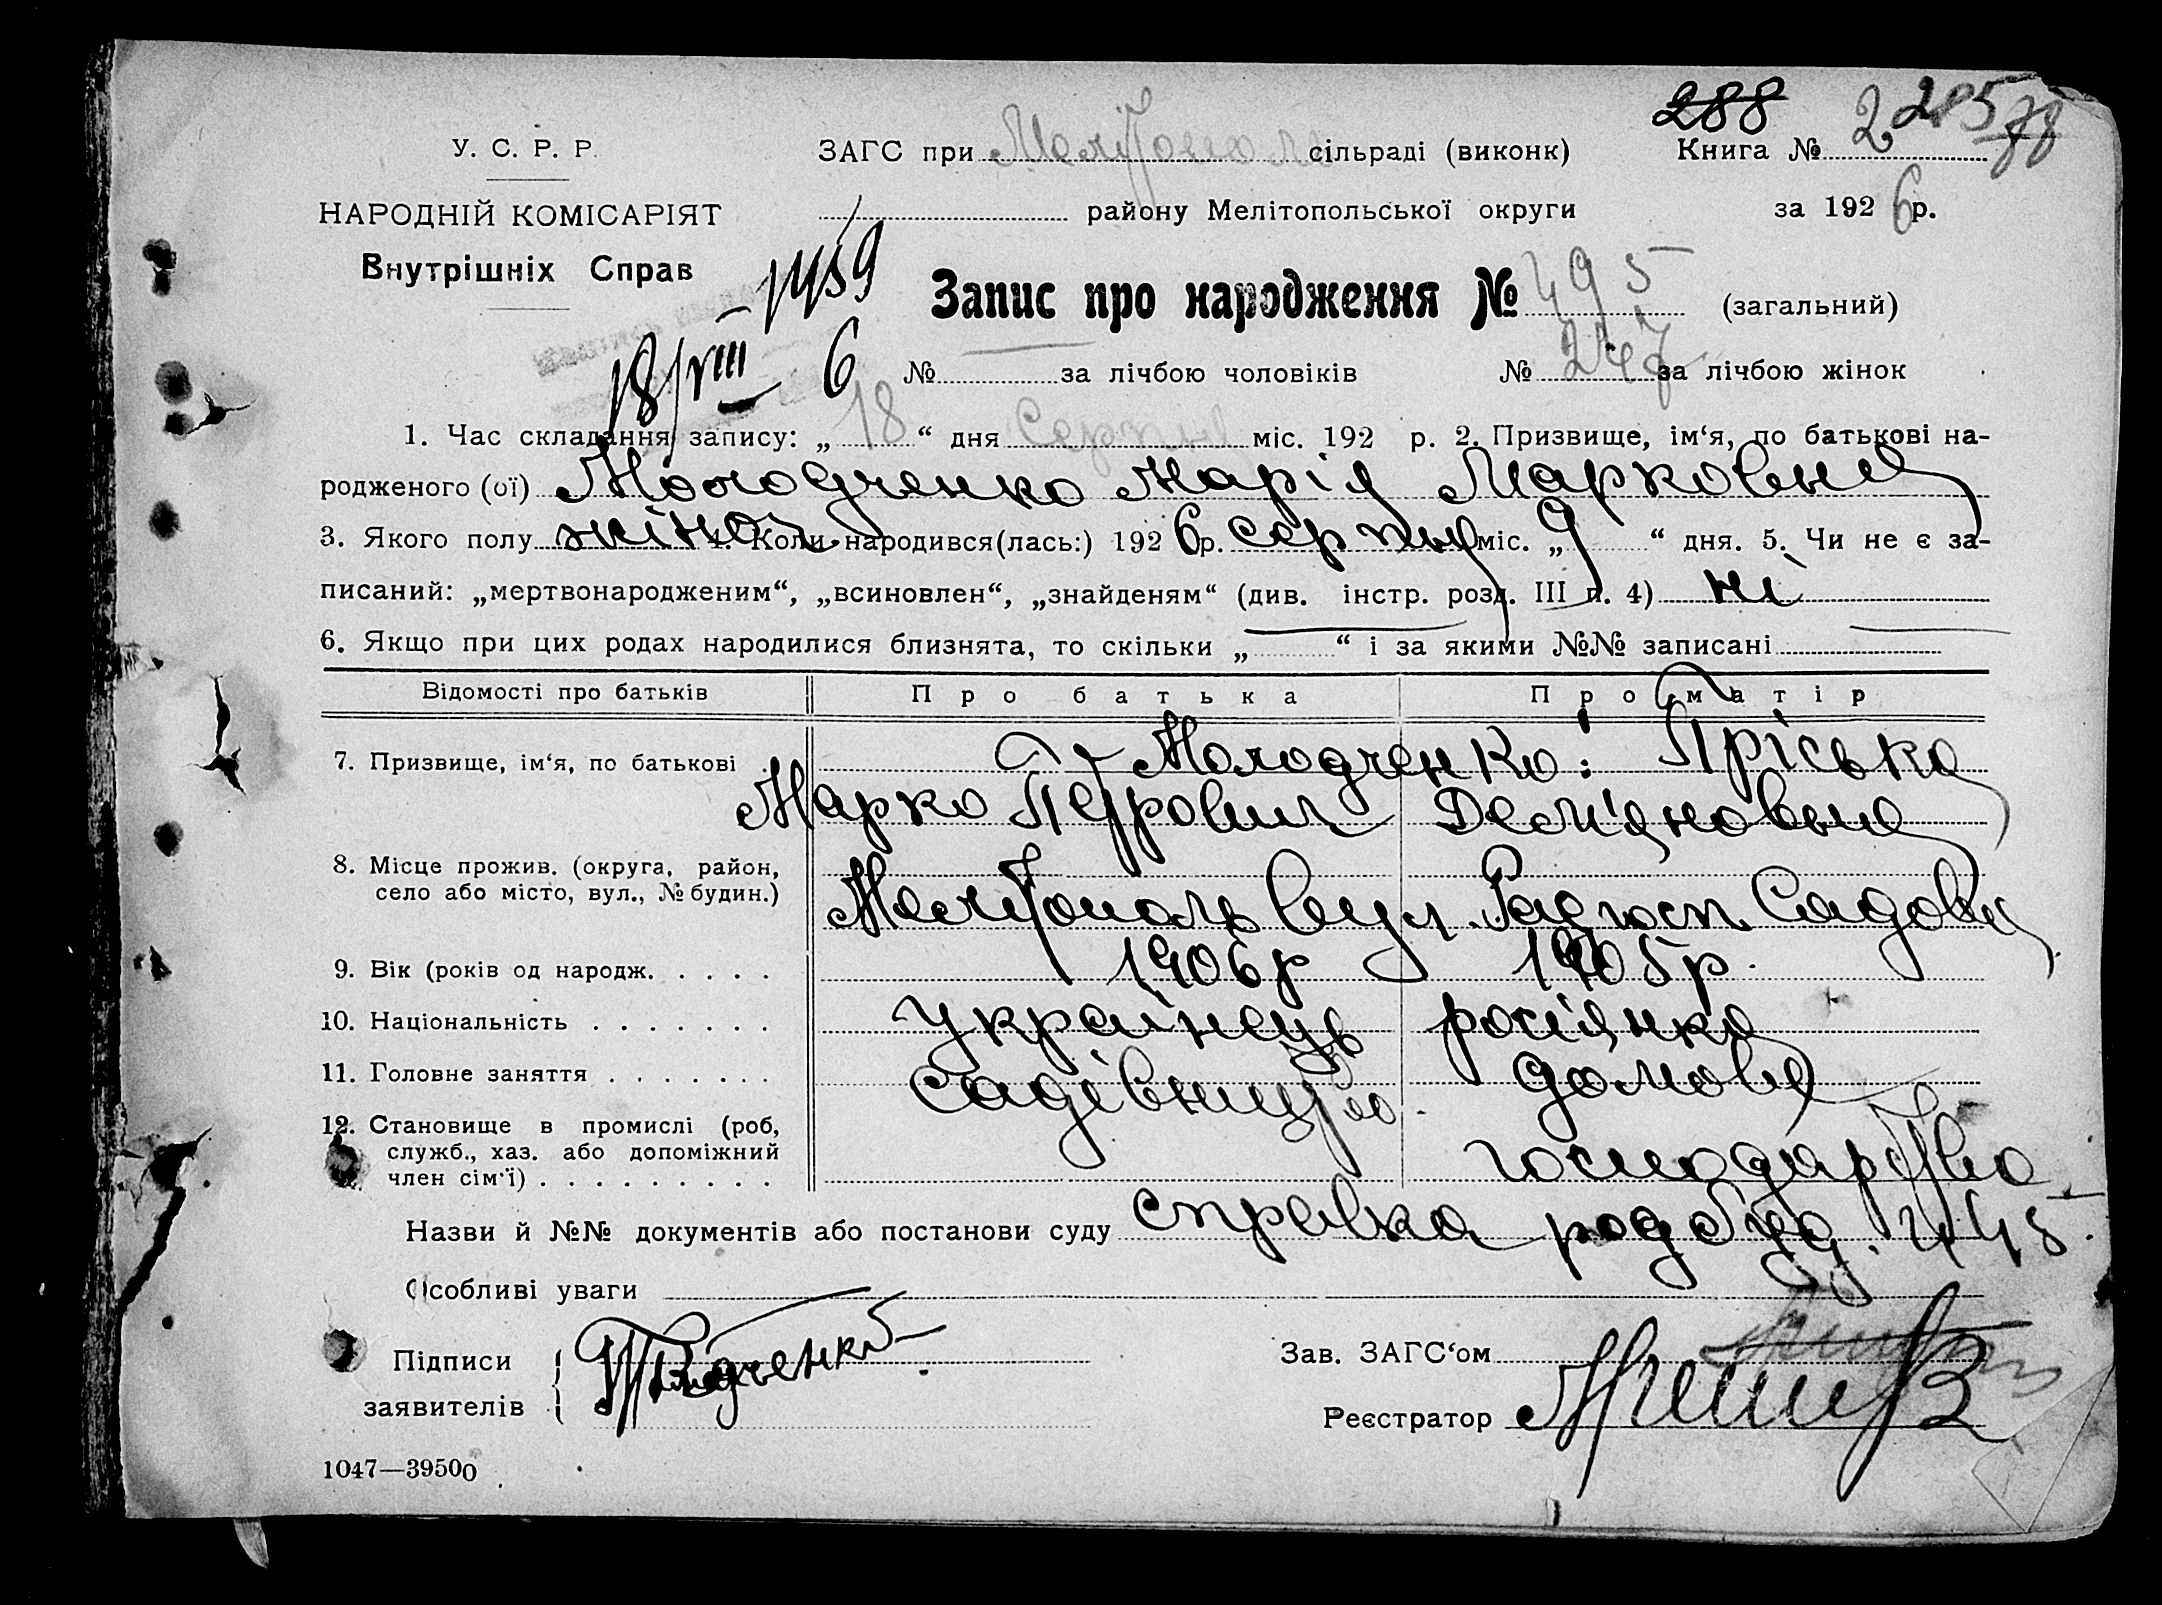 288 2 285 78
У. С. Р. Р. ЗАГС при Мелітополі сільраді (виконк) Книга №
НАРОДНІЙ КОМІСАРІЯТ району Мелітопольської округи за 1926 р.
Внутрішніх Справ
1459
Запис про народження № 495 (загальний)
18/VIII 6 № за лічбою чоловіків № 247 за лічбою жінок
1. Час складання запису: „ 18 “ дня Серпня міс. 192 р. 2. Призвище, ім‘я, по батькові на-
родженого (ої) Молодченко Марія Марковна
3. Якого полу жіноч. 4. Коли народився(лась:) 1926 р. серпня міс. „ 9 “ дня. 5. Чи не є за-
писаний: „мертвонародженим“, „всиновлен“, „знайденям“ (див. інстр. розд. III п. 4) ні
6. Якщо при цих родах народилися близнята, то скільки „ “ і за якими №№ записані
Відомості про батьків Про батька Про матір
7. Призвище, ім‘я, по батькові Молодченко: Пріська
Марко Петрович Деміяновна
8. Місце прожив. (округа, район,
село або місто, вул., № будин.) Мелітополь вул. Садова
9. Вік (років од народж. 1906 р 1905 р.
10. Національність українець росіянка
11. Головне заняття садівництво домове
12. Становище в промислі (роб,
служб., хаз. або допоміжний
член сім‘ї) господарство
Назви й №№ документів або постанови суду справка род буд. 448.
Особливі уваги
Підписи
заявителів Молодченко
Зав. ЗАГС‘ом
Реєстратор
1047—39500